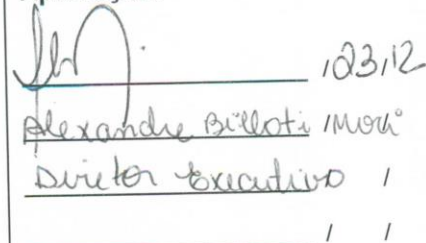 /23/12
Alexandre Billoti /Mori
Diretor Executivo /
/ /